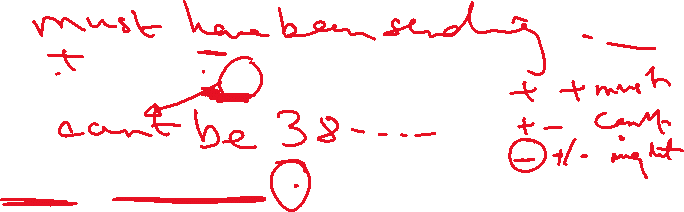 must have been sending ....
+ + must
can't be 38 .....
+ - can't
- +/- might